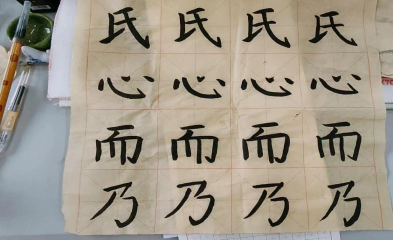 氏氏氏氏
心心心心
而而而而
乃乃乃乃